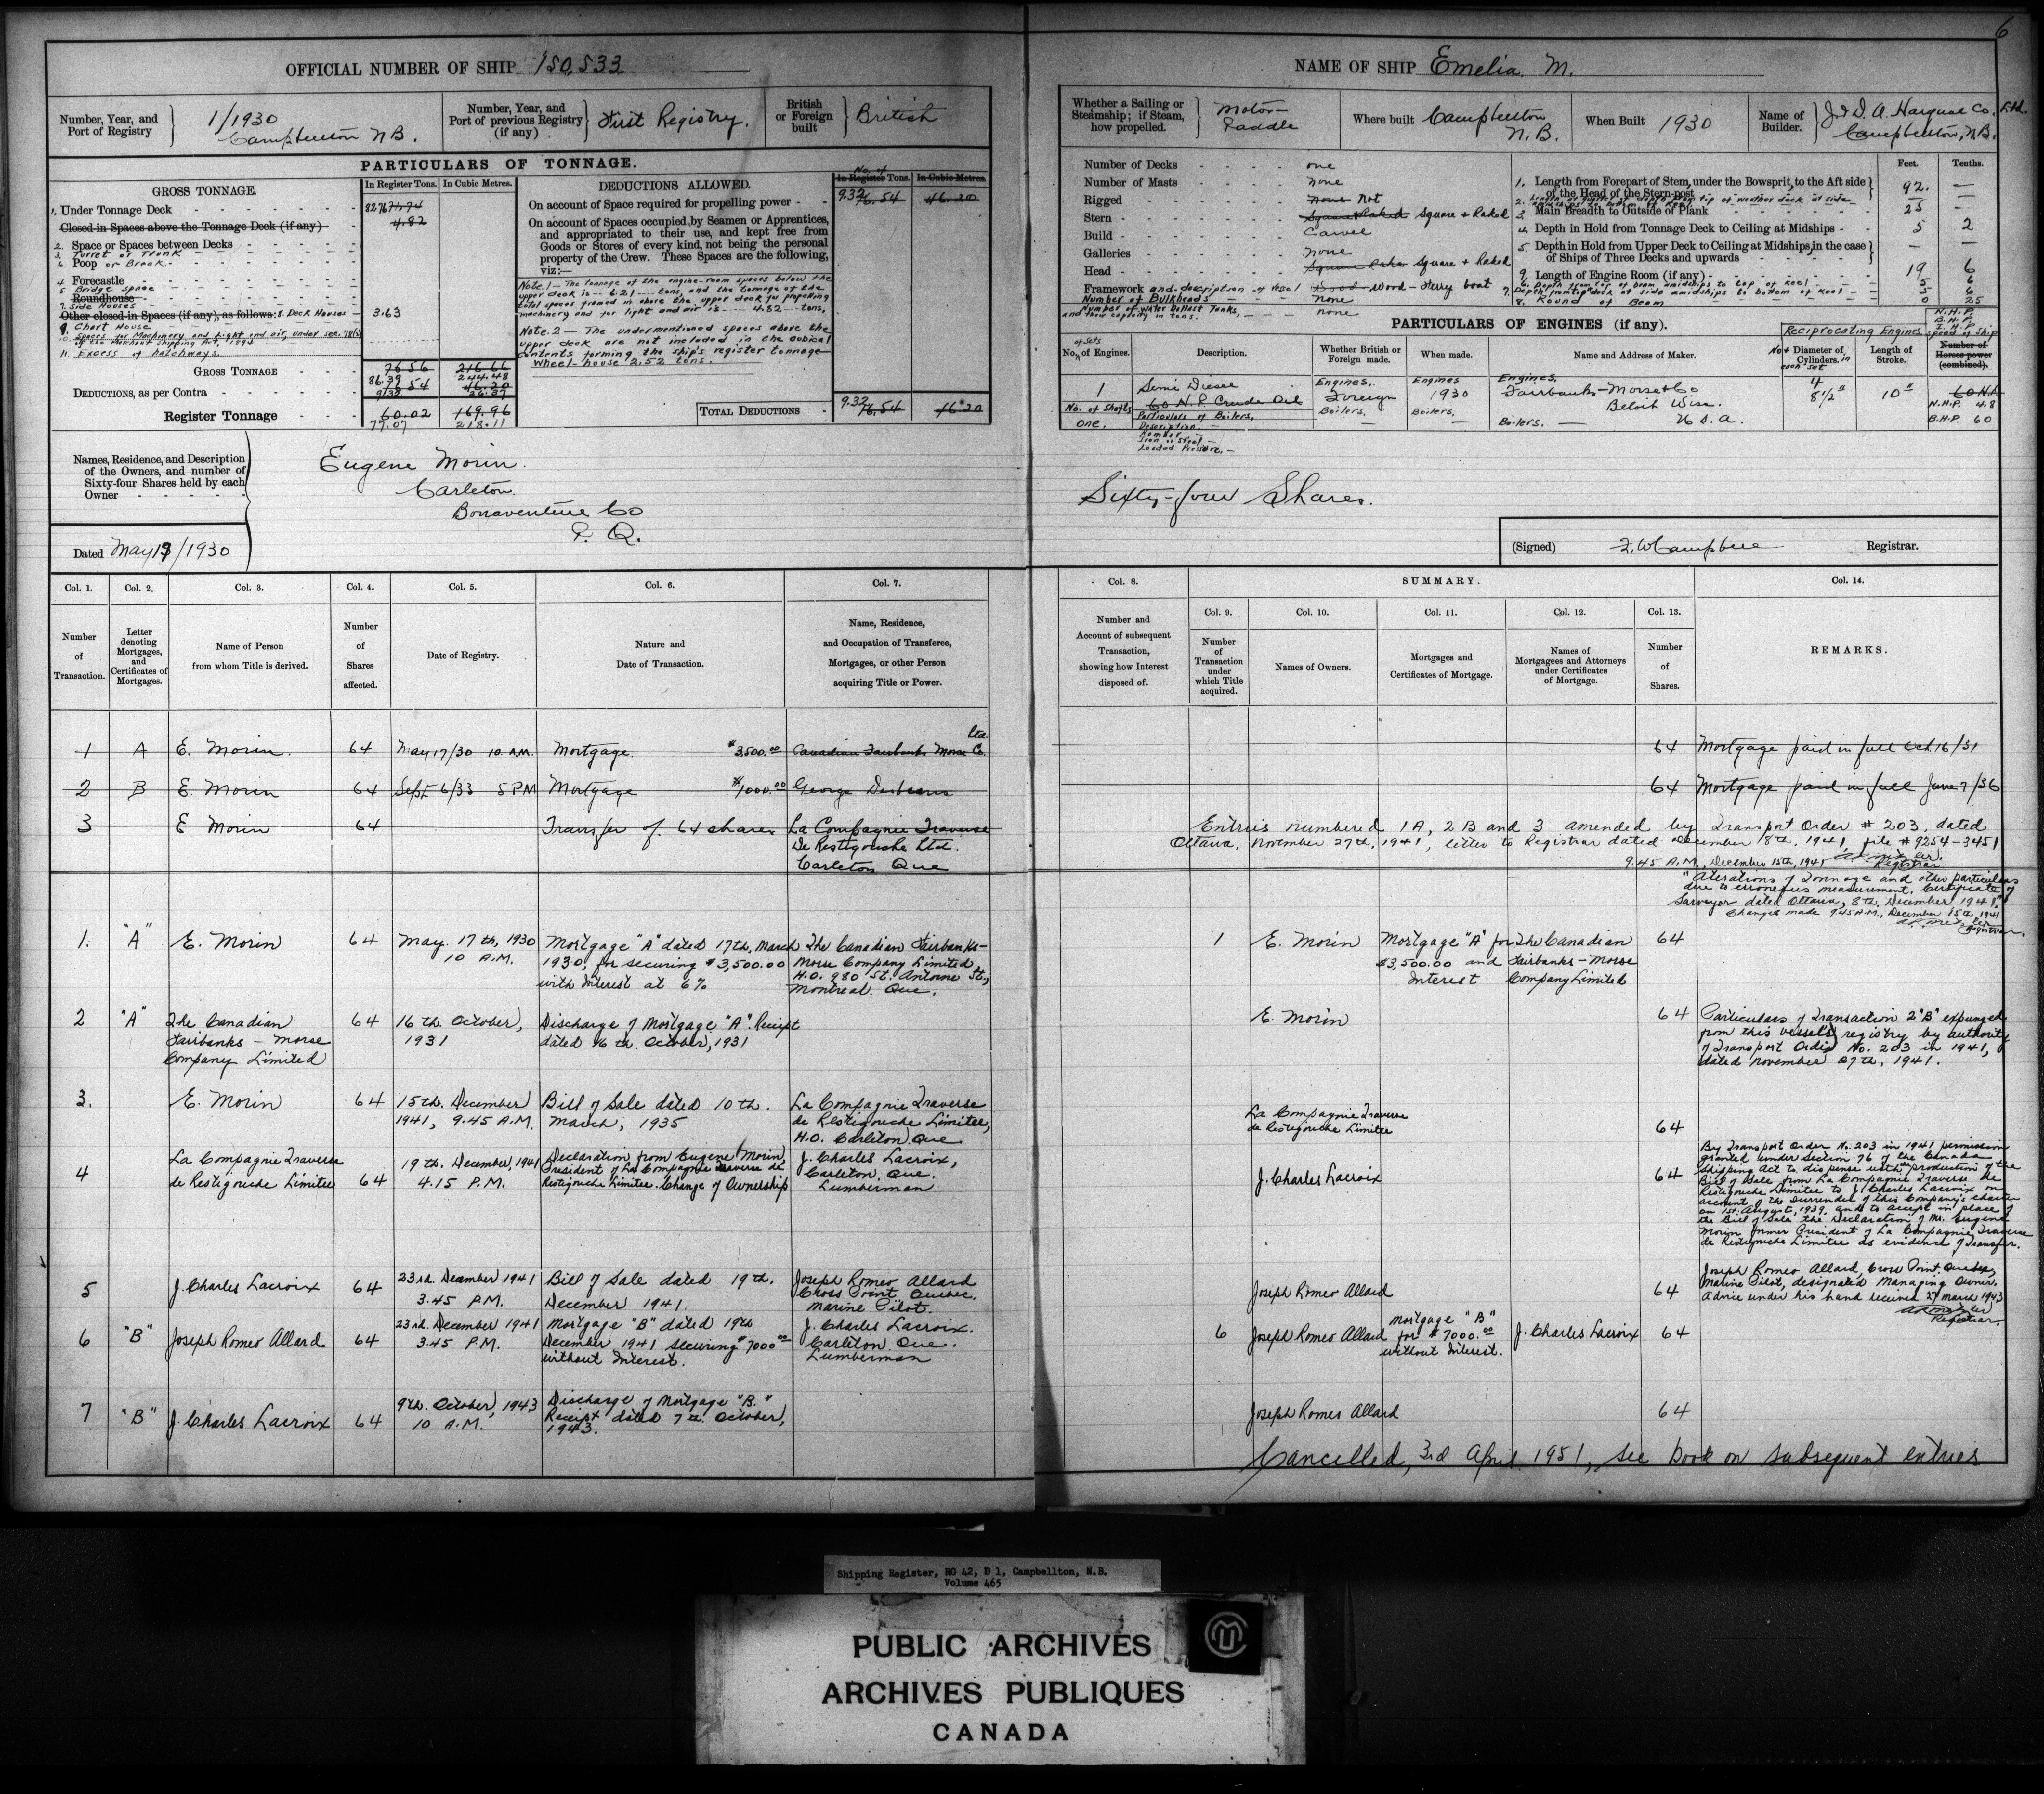 6
OFFICIAL NUMBER OF SHIP 150,533
Number, Year, and Port of Registry
1/1930
Campbellton N.B.
Number, Year, and Port of previous Registry (if any)
First Registry.
British or Foreign built
British
PARTICULARS OF TONNAGE.
GROSS TONNAGE.
In Register Tons.
In Cubic Metres.
1. Under Tonnage Deck
82.76 71.74
Closed-in Spaces above the Tonnage Deck (if any)
4.82
2. Space or Spaces between Decks
3. Turret or Trunk
6 Poop or Break
4 Forecastle
5 Bridge space
Roundhouse
7. Side Houses
Other closed-in Spaces (if any), as follows: 8. Deck Houses
3.63
9. Chart House
10. Spaces for Machinery and light and air, under sec. 78(2) of the Merchant Shipping Act, 1894
11. Excess of hatchways.
GROSS TONNAGE
76.56 216.66
86.39 244.48
DEDUCTIONS, as per Contra
16.54 46.20
9.32 26.37
Register Tonnage
60.02 169.96
77.07 218.11
DEDUCTIONS ALLOWED.
No. of
In Register Tons.
In Cubic Metres.
On account of Space required for propelling power
9.32 16.54 46.20
On account of Spaces occupied by Seamen or Apprentices,
and appropriated to their use, and kept free from
Goods or Stores of every kind, not being the personal
property of the Crew. These Spaces are the following,
viz:—
Note.1 — The tonnage of the engine-room spaces below the
upper deck is -- 6.21 --- tons, and the tonnage of the
total spaces framed in above the upper deck for propelling
machinery and for light and air is --- 4.82 --- tons,
Note. 2 — The undermentioned spaces above the
upper deck are not included in the cubical
contents forming the ship's register tonnage—
Wheel-house 2.52 tons.
TOTAL DEDUCTIONS
9.32 16.54 46.20
Names, Residence, and Description
of the Owners, and number of
Sixty-four Shares held by each
Owner
Eugene Morin.
Carleton.
Bonaventure Co
P. Q.
Dated May 17/1930
NAME OF SHIP Emelia. M.
Whether a Sailing or
Steamship; if Steam,
how propelled.
Motor-
Paddle
Where built
Campbellton
N.B.
When Built
1930
Name of
Builder.
J & D. A. Harquail Co. Ltd.
Campbellton, N.B.
Number of Decks one
Number of Masts None
Rigged None Not
Stern Square & Raked Square & Raked
Build Carvel
Galleries None
Head Square & Raked
Framework and description of vessel Wood Wood - Ferry boat
Number of Bulkheads none
Number of Water Ballast Tanks,
and their capacity in tons. none
Feet. Tenths.
1. Length from Forepart of Stem, under the Bowsprit, to the Aft side
of the Head of the Stern-post
92. —
3. Main Breadth to Outside of Plank
25 —
4. Depth in Hold from Tonnage Deck to Ceiling at Midships
5 2
5. Depth in Hold from Upper Deck to Ceiling at Midships, in the case
of Ships of Three Decks and upwards
— —
9. Length of Engine Room (if any)
19 6
6. Depth from top of beam amidships to top of keel
5 6
7. Depth from top of deck at side amidships to bottom of keel
5 6
8. Round of Beam
0 25
PARTICULARS OF ENGINES (if any).
No. of sets of Engines.
Description.
Whether British or Foreign made.
When made.
Name and Address of Maker.
Reciprocating Engines
No. & Diameter of Cylinders in each set
Length of Stroke.
N.H.P.
B.H.P.
I.H.P.
Speed of Ship
Number of Horses power (combined).
1
Semi Diesel
60 H.P. Crude Oil
Engines.
Foreign
Engines
1930
Engines.
Fairbanks-Morse & Co
Beloit Wisc.
U.S.A.
4
8½"
10"
60 H.P.
N.H.P. 4.8
B.H.P. 60
No. of Shafts
one.
Particulars of Boilers.
Description. —
Number —
Iron or Steel —
Loaded Pressure. —
Boilers. —
Boilers. —
Boilers. —
Sixty-four Shares.
(Signed) F. W Campbell Registrar.
Col. 1. Col. 2. Col. 3. Col. 4. Col. 5. Col. 6. Col. 7.
Number of Transaction.
Letter denoting Mortgages, and Certificates of Mortgages.
Name of Person from whom Title is derived.
Number of Shares affected.
Date of Registry.
Nature and Date of Transaction.
Name, Residence, and Occupation of Transferee, Mortgagee, or other Person acquiring Title or Power.
Col. 8.
SUMMARY.
Col. 14.
Col. 9. Col. 10. Col. 11. Col. 12. Col. 13.
Number and Account of subsequent Transaction, showing how Interest disposed of.
Number of Transaction under which Title acquired.
Names of Owners.
Mortgages and Certificates of Mortgage.
Names of Mortgagees and Attorneys under Certificates of Mortgage.
Number of Shares.
REMARKS.
1 A E. Morin. 64 May 17/30 10. A.M. Mortgage. $3,500.00 Canadian Fairbanks Morse Co. Ltd
64 Mortgage paid in full Oct 16/31
2 B E. Morin 64 Sept 6/33 5 PM Mortgage $1000.00 George
64 Mortgage paid in full June 7/36
3 E Morin 64 Transfer of 64 shares La Compagnie Traverse
De Restigouche Ltd.
Carleton Que
Entries numbered 1A, 2B and 3 amended by Transport Order # 203, dated
Ottawa, November 27th, 1941, letter to Registrar dated December 18th, 1941, file # 9254-3451
9.45 A.M. December 15th, 1941
Registrar
"Alterations of Tonnage and other particulars
due to erroneous measurement. Certificate of
Surveyor dated Ottawa, 8th. December 1941."
Changes made 9.45 A.M., December 15th, 1941
Registrar.
1. "A" E. Morin 64 May. 17th, 1930
10 A.M.
Mortgage "A" dated 17th, March
1930, for securing $3,500.00
with Interest at 6%
The Canadian Fairbanks-
Morse Company Limited,
H.O. 980 St. Antoine St.,
Montreal. Que.
1 E. Morin
Mortgage "A" for
$3,500.00 and
Interest
The Canadian
Fairbanks-Morse
Company Limited
64
2 "A" The Canadian
Fairbanks - Morse
Company Limited
64
16th. October,
1931
Discharge of Mortgage "A". Receipt
dated 16th. October, 1931
E. Morin
64
Particulars of Transaction 2"B" expunged
from this vessel's registry by authority
of Transport Order No. 203 in 1941,
dated November 27th, 1941.
3. E. Morin 64
15th. December
1941, 9.45 A.M.
Bill of Sale dated 10th.
March, 1935
La Compagnie Traverse
de Restigouche Limitee,
H.O. Carleton, Que
La Compagnie Traverse
de Restigouche Limitee
64
4 La Compagnie Traverse
de Restigouche Limitee
64
19th. December, 1941
4.15 P.M.
Declaration from Eugene Morin,
President of La Compagnie Traverse de
Restigouche Limitee. Change of Ownership
J. Charles Lacroix,
Carleton, Que.
Lumberman
J. Charles Lacroix
64
By Transport Order No. 203 in 1941 permission
granted under Section 76 of the Canada
Shipping Act to dispense with production of the
Bill of Sale from La Compagnie Traverse de
Restigouche Limitee to J. Charles Lacroix on
account of the surrender of this Company's charter
on 1st. August, 1939, and to accept in place of
the Bill of Sale the Declaration of Mr. Eugene
Morin former President of La Compagnie Traverse
de Restigouche Limitee as evidence of Transfer.
5 J. Charles Lacroix 64
23rd. December 1941
3.45 P.M.
Bill of Sale dated 19th.
December 1941.
Joseph Romeo Allard
Cross Point, Quebec.
Marine Pilot.
Joseph Romeo Allard
64
Joseph Romeo Allard, Cross Point, Quebec,
Marine Pilot, designated Managing Owner.
Advice under his hand received 27 March 1943
Registrar.
6 "B" Joseph Romeo Allard 64
23rd. December 1941
3.45 P.M.
Mortgage "B" dated 19th
December 1941 securing $7000.00
without Interest.
J. Charles Lacroix.
Carleton, Que.
Lumberman
6 Joseph Romeo Allard
Mortgage "B"
for $7000.00
without Interest.
J. Charles Lacroix
64
7 "B" J. Charles Lacroix 64
9th. October, 1943
10 A.M.
Discharge of Mortgage "B."
Receipt dated 7th. October,
1943.
Joseph Romeo Allard
64
Cancelled, 3rd April 1951, see book on subsequent entries
Shipping Register, RG 42, D 1, Campbellton, N.B.
Volume 465
PUBLIC ARCHIVES
ARCHIVES PUBLIQUES
CANADA